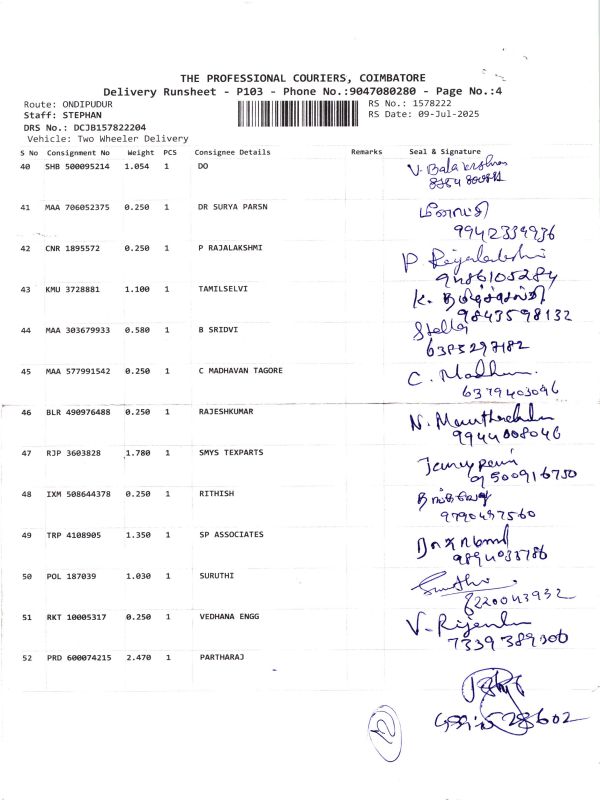 THE PROFESSIONAL COURIERS, COIMBATORE
Delivery Runsheet - P103 - Phone No.:9047080280 - Page No.:4
Route: ONDIPUDUR RS No.: 1578222
Staff: STEPHAN RS Date: 09-Jul-2025
DRS No.: DCJB157822204
Vehicle: Two Wheeler Delivery
S No Consignment No Weight PCS Consignee Details Remarks Seal & Signature
40 SHB 500095214 1.054 1 DO V. Balakrishnan
41 MAA 706052375 0.250 1 DR SURYA PARSN மீனாட்சி
9942339936
42 CNR 1895572 0.250 1 P RAJALAKSHMI P Rajalakshmi
9486105284
43 KMU 3728881 1.100 1 TAMILSELVI K. தமிழ்ச்செல்வி
9843598132
44 MAA 303679933 0.580 1 B SRIDVI Stella
6385297182
45 MAA 577991542 0.250 1 C MADHAVAN TAGORE C. Madhun
6379403096
46 BLR 490976488 0.250 1 RAJESHKUMAR N.
9944008046
47 RJP 3603828 1.780 1 SMYS TEXPARTS
9500916750
48 IXM 508644378 0.250 1 RITHISH
9790497560
49 TRP 4108905 1.350 1 SP ASSOCIATES
9894033786
50 POL 187039 1.030 1 SURUTHI Suruthi
8220043932
51 RKT 10005317 0.250 1 VEDHANA ENGG V. Rijendu
7339389306
52 PRD 600074215 2.470 1 PARTHARAJ